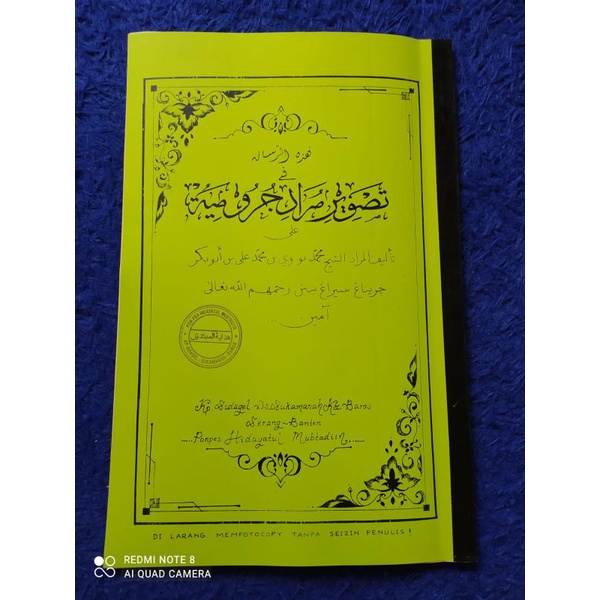 هذه الرسالة
في
تصوير مراد جروضية
على
تأليف المراد الشيخ محمد نووي بن محمد علي بن أبو بكر
جريباغ سيراغ بنتن رحمهم الله تعالى
آمين...
هداية المبتدئين
Kp. Sidagel Ds. Sukamanah Kec. Baros
Serang-Banten
...Ponpes Hidayatul Mubtadiin...
DI LARANG MEMFOTOCOPY TANPA SEIZIN PENULIS!
REDMI NOTE 8
AI QUAD CAMERA